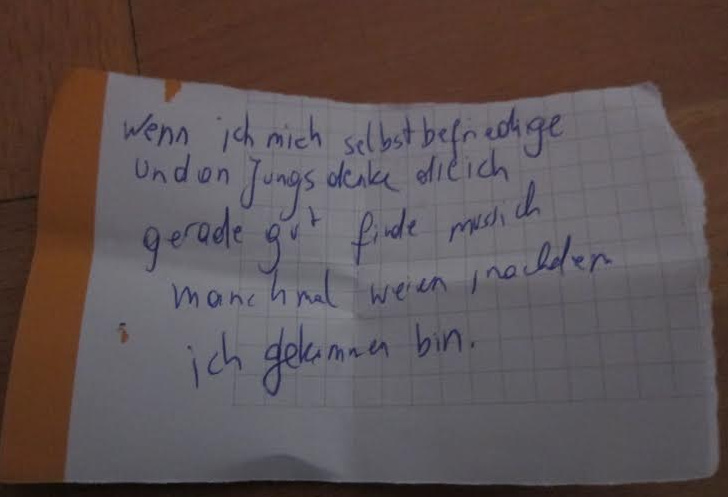 Wenn ich mich selbstbefriedige
und an Jungs denke die ich
gerade gut finde muss ich
manchmal weien, nachdem
ich gekommen bin.